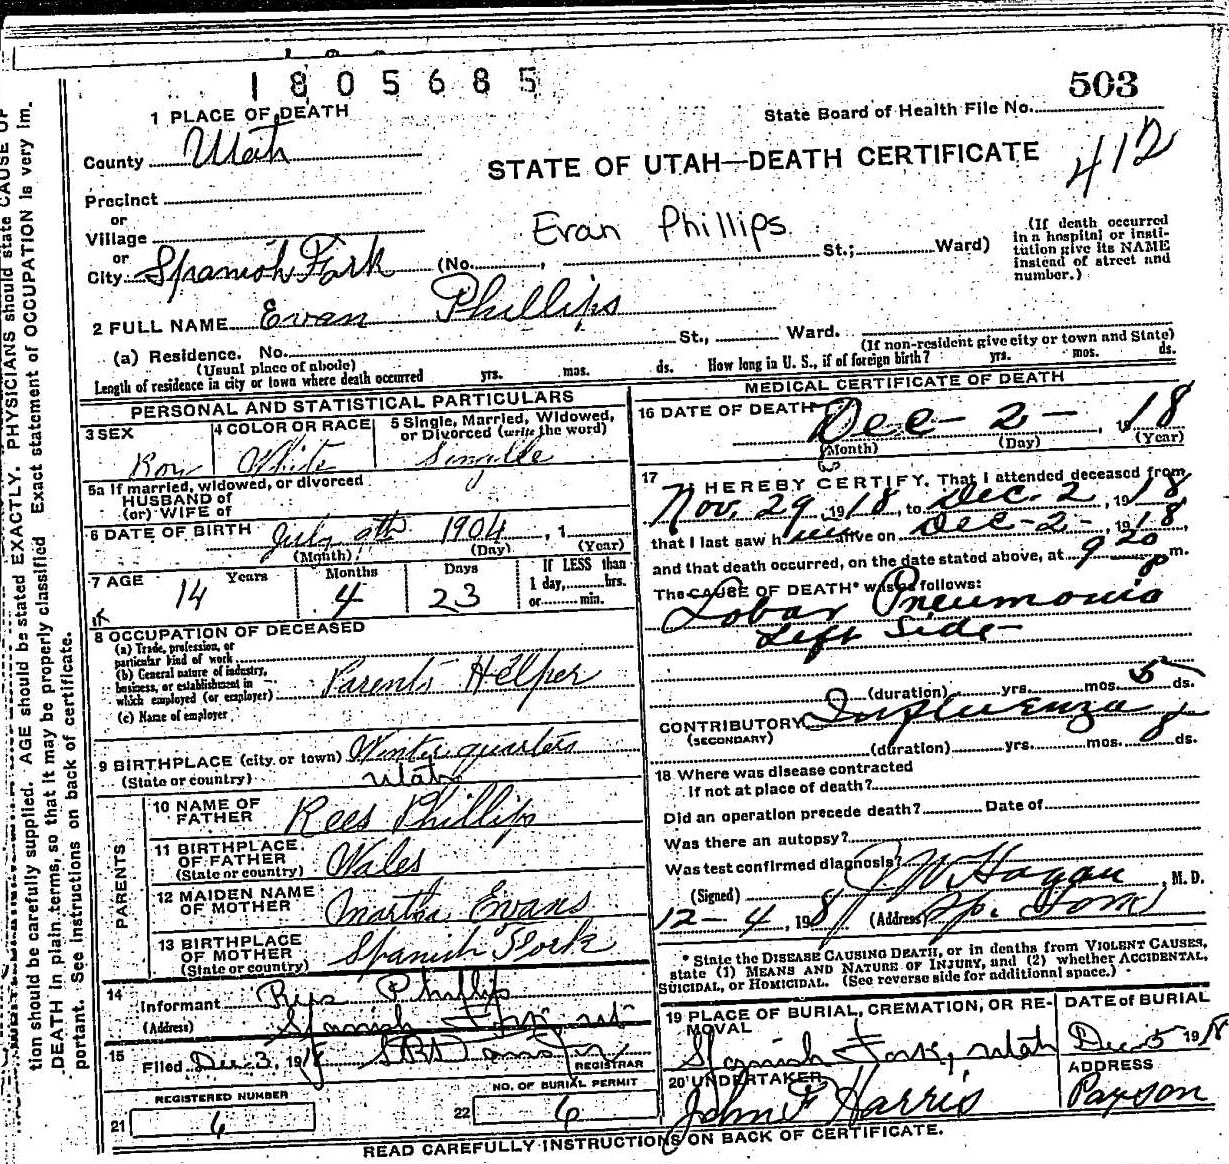 1805685
503
State Board of Health File No.
412
1 PLACE OF DEATH
County Utah
STATE OF UTAH—DEATH CERTIFICATE
Precinct
or
Village
Evan Phillips
or
City Spanish Fork (No. , St.; Ward)
(If death occurred in a hospital or institution give its NAME instead of street and number.)
2 FULL NAME Evan Phillips
(a) Residence. No. St., Ward.
(Usual place of abode)
(If non-resident give city or town and State)
Length of residence in city or town where death occurred yrs. mos. ds. How long in U. S., if of foreign birth? yrs. mos. ds.
PERSONAL AND STATISTICAL PARTICULARS
3 SEX
4 COLOR OR RACE White
5 Single, Married, Widowed, or Divorced (write the word)
5a If married, widowed, or divorced
HUSBAND of
(or) WIFE of
6 DATE OF BIRTH July 9th 1904, 1
(Month) (Day) (Year)
7 AGE 14 Years 4 Months 23 Days
If LESS than
1 day, hrs.
or min.
8 OCCUPATION OF DECEASED
(a) Trade, profession, or
particular kind of work
(b) General nature of industry,
business, or establishment in
which employed (or employer) Parents Helper
(c) Name of employer
9 BIRTHPLACE (city or town) Winterquarters
(State or country) Utah
PARENTS
10 NAME OF FATHER Rees Phillips
11 BIRTHPLACE OF FATHER (State or country) Wales
12 MAIDEN NAME OF MOTHER Martha Evans
13 BIRTHPLACE OF MOTHER (State or country) Spanish Fork
14
Informant Rees Phillips
(Address) Spanish Fork, Ut
15
Filed Dec 3, 1918
REGISTRAR
REGISTERED NUMBER
21 6
NO. OF BURIAL PERMIT
22 6
MEDICAL CERTIFICATE OF DEATH
16 DATE OF DEATH Dec - 2 - , 1918
(Month) (Day) (Year)
17 I HEREBY CERTIFY, That I attended deceased from
Nov. 29, 1918, to Dec. 2, 1918,
that I last saw him alive on Dec - 2 - , 1918,
and that death occurred, on the date stated above, at 9 20 P m.
The CAUSE OF DEATH* was as follows:
Lobar Pneumonia
Left Side
(duration) yrs. mos. 5 ds.
CONTRIBUTORY Influenza
(SECONDARY)
(duration) yrs. mos. 8 ds.
18 Where was disease contracted
If not at place of death?
Did an operation precede death? Date of
Was there an autopsy?
Was test confirmed diagnosis?
(Signed) J W Hagan, M. D.
12-4, 1918 (Address) Sp. Fork
* State the DISEASE CAUSING DEATH, or in deaths from VIOLENT CAUSES,
state (1) MEANS AND NATURE OF INJURY, and (2) whether ACCIDENTAL,
SUICIDAL, or HOMICIDAL. (See reverse side for additional space.)
19 PLACE OF BURIAL, CREMATION, OR REMOVAL
Spanish Fork, Utah
DATE of BURIAL
Dec 5 1918
20 UNDERTAKER
John F Harris
ADDRESS
Payson
READ CAREFULLY INSTRUCTIONS ON BACK OF CERTIFICATE.
tion should be carefully supplied. AGE should be stated EXACTLY. PHYSICIANS should state CAUSE OF
DEATH in plain terms, so that it may be properly classified. Exact statement of OCCUPATION is very im-
portant. See instructions on back of certificate.